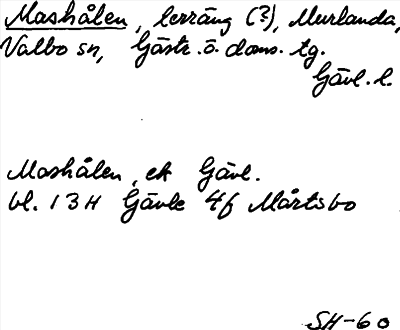 Mashålen, terräng (?), Murlanda,
Valbo sn, Gästr. ö. doms. tg.
Gävl. l.
Mashålen, ek Gävl.
bl. 13H Gävle 4f Mårtsbo
SH-60